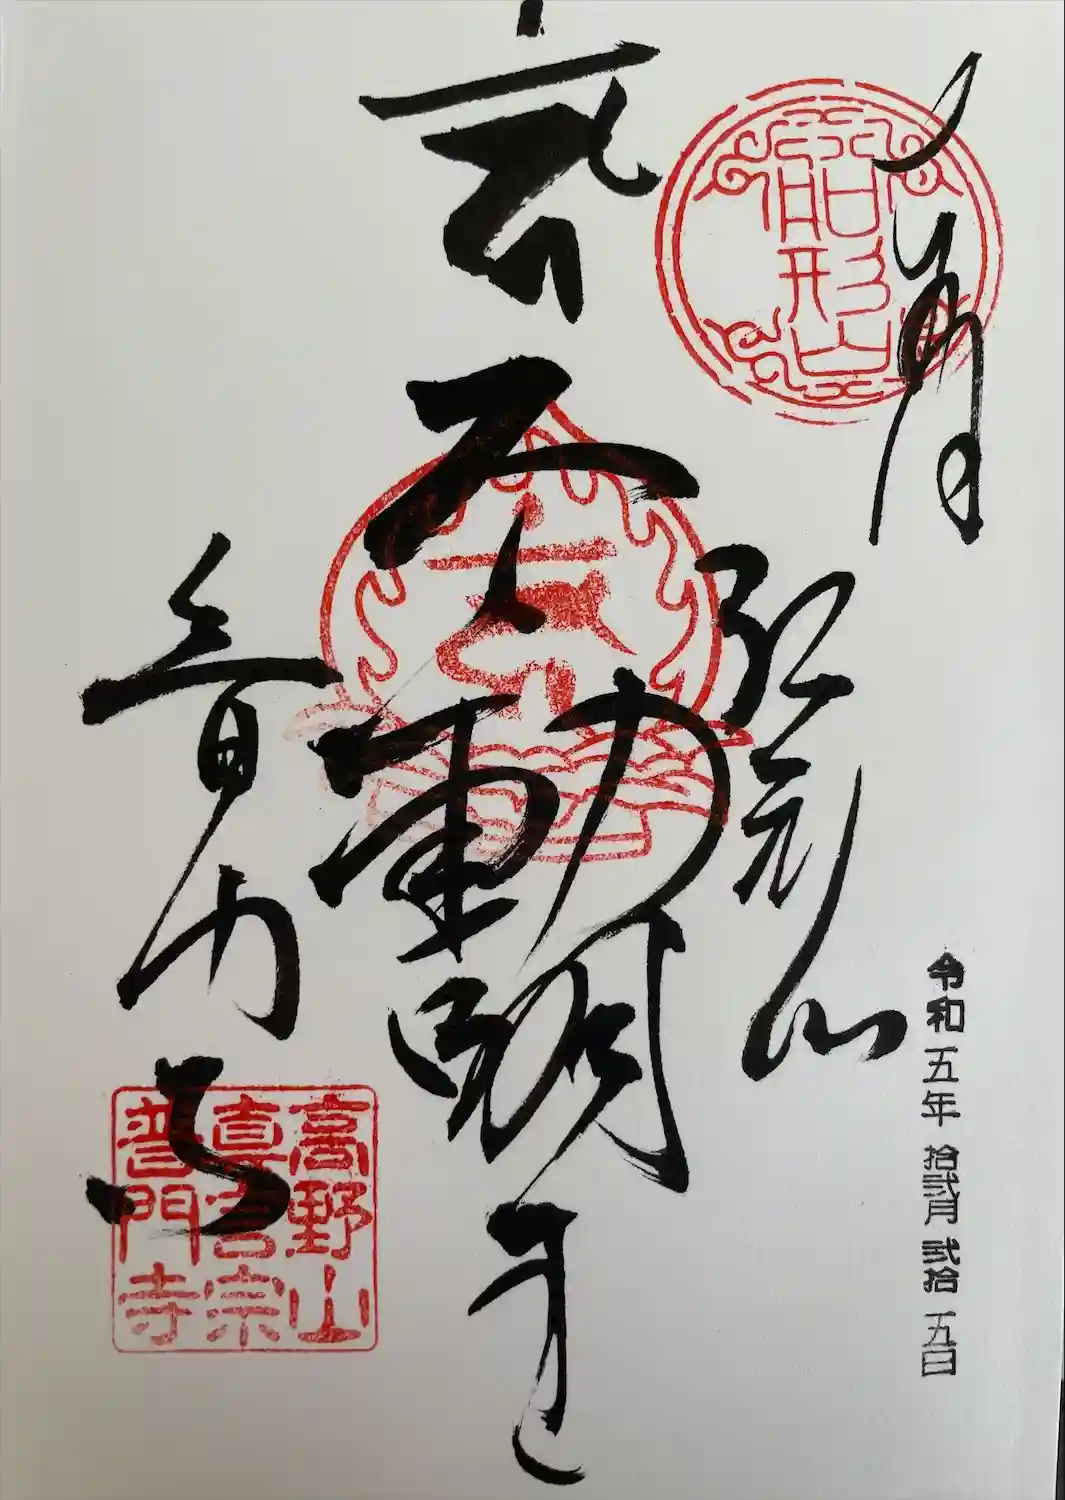 奉拝
船形山
船形山
令和五年 拾弐月 弐拾五日
不動明王
普門寺
高野山
真言宗
普門寺